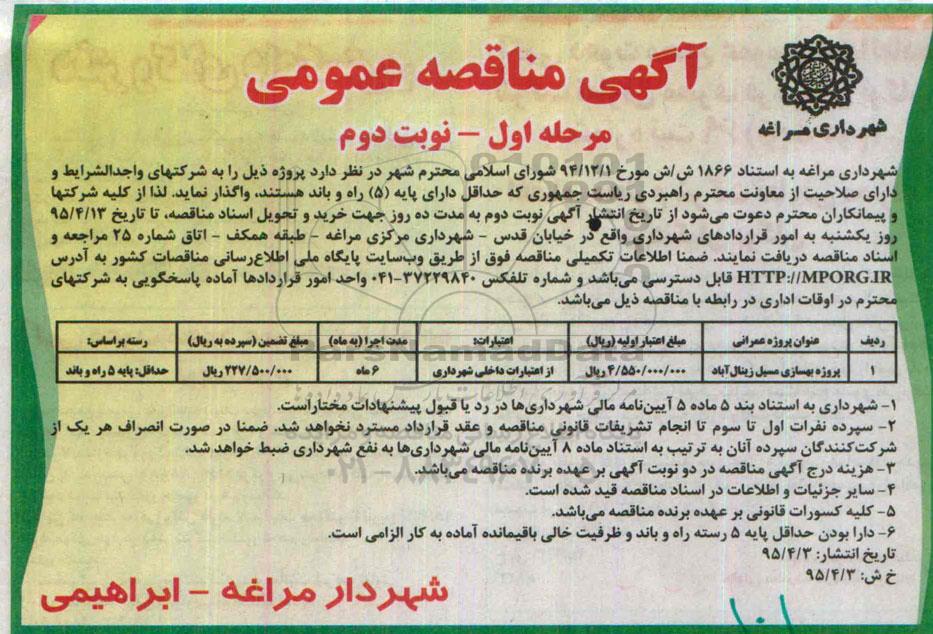 آگهی مناقصه عمومی
شهرداری مراغه
مرحله اول – نوبت دوم
شهرداری مراغه به استناد ۱۸۶۶ ش/ش مورخ ۹۴/۱۲/۱ شورای اسلامی محترم شهر در نظر دارد پروژه ذیل را به شرکتهای واجدالشرایط و
دارای صلاحیت از معاونت محترم راهبردی ریاست جمهوری که حداقل دارای پایه (۵) راه و باند هستند، واگذار نماید. لذا از کلیه شرکتها
و پیمانکاران محترم دعوت می‌شود از تاریخ انتشار آگهی نوبت دوم به مدت ده روز جهت خرید و تحویل اسناد مناقصه، تا تاریخ ۹۵/۴/۱۳
روز یکشنبه به امور قراردادهای شهرداری واقع در خیابان قدس – شهرداری مرکزی مراغه – طبقه همکف – اتاق شماره ۲۵ مراجعه و
اسناد مناقصه دریافت نمایند. ضمنا اطلاعات تکمیلی مناقصه فوق از طریق وب‌سایت پایگاه ملی اطلاع‌رسانی مناقصات کشور به آدرس
HTTP://MPORG.IR قابل دسترسی می‌باشد و شماره تلفکس ۳۷۲۲۹۸۴۰-۰۴۱ واحد امور قراردادها آماده پاسخگویی به شرکتهای
محترم در اوقات اداری در رابطه با مناقصه ذیل می‌باشد.
ردیف عنوان پروژه عمرانی مبلغ اعتبار اولیه (ریال) اعتبارات: مدت اجرا (به ماه) مبلغ تضمین (سپرده به ریال) رسته براساس:
۱ پروژه بهسازی مسیل زینال‌آباد ۴/۵۵۰/۰۰۰/۰۰۰ ریال از اعتبارات داخلی شهرداری ۶ ماه ۲۲۷/۵۰۰/۰۰۰ ریال حداقل: پایه ۵ راه و باند
ParsNamadData
۱- شهرداری به استناد بند ۵ ماده ۵ آیین‌نامه مالی شهرداری‌ها در رد یا قبول پیشنهادات مختاراست.
۲- سپرده نفرات اول تا سوم تا انجام تشریفات قانونی مناقصه و عقد قرارداد مسترد نخواهد شد. ضمنا در صورت انصراف هر یک از
شرکت‌کنندگان سپرده آنان به ترتیب به استناد ماده ۸ آیین‌نامه مالی شهرداری‌ها به نفع شهرداری ضبط خواهد شد.
۳- هزینه درج آگهی مناقصه در دو نوبت آگهی بر عهده برنده مناقصه می‌باشد.
۴- سایر جزئیات و اطلاعات در اسناد مناقصه قید شده است.
۵- کلیه کسورات قانونی بر عهده برنده مناقصه می‌باشد.
۶- دارا بودن حداقل پایه ۵ رسته راه و باند و ظرفیت خالی باقیمانده آماده به کار الزامی است.
تاریخ انتشار: ۹۵/۴/۳
خ ش: ۹۵/۴/۳
شهردار مراغه – ابراهیمی